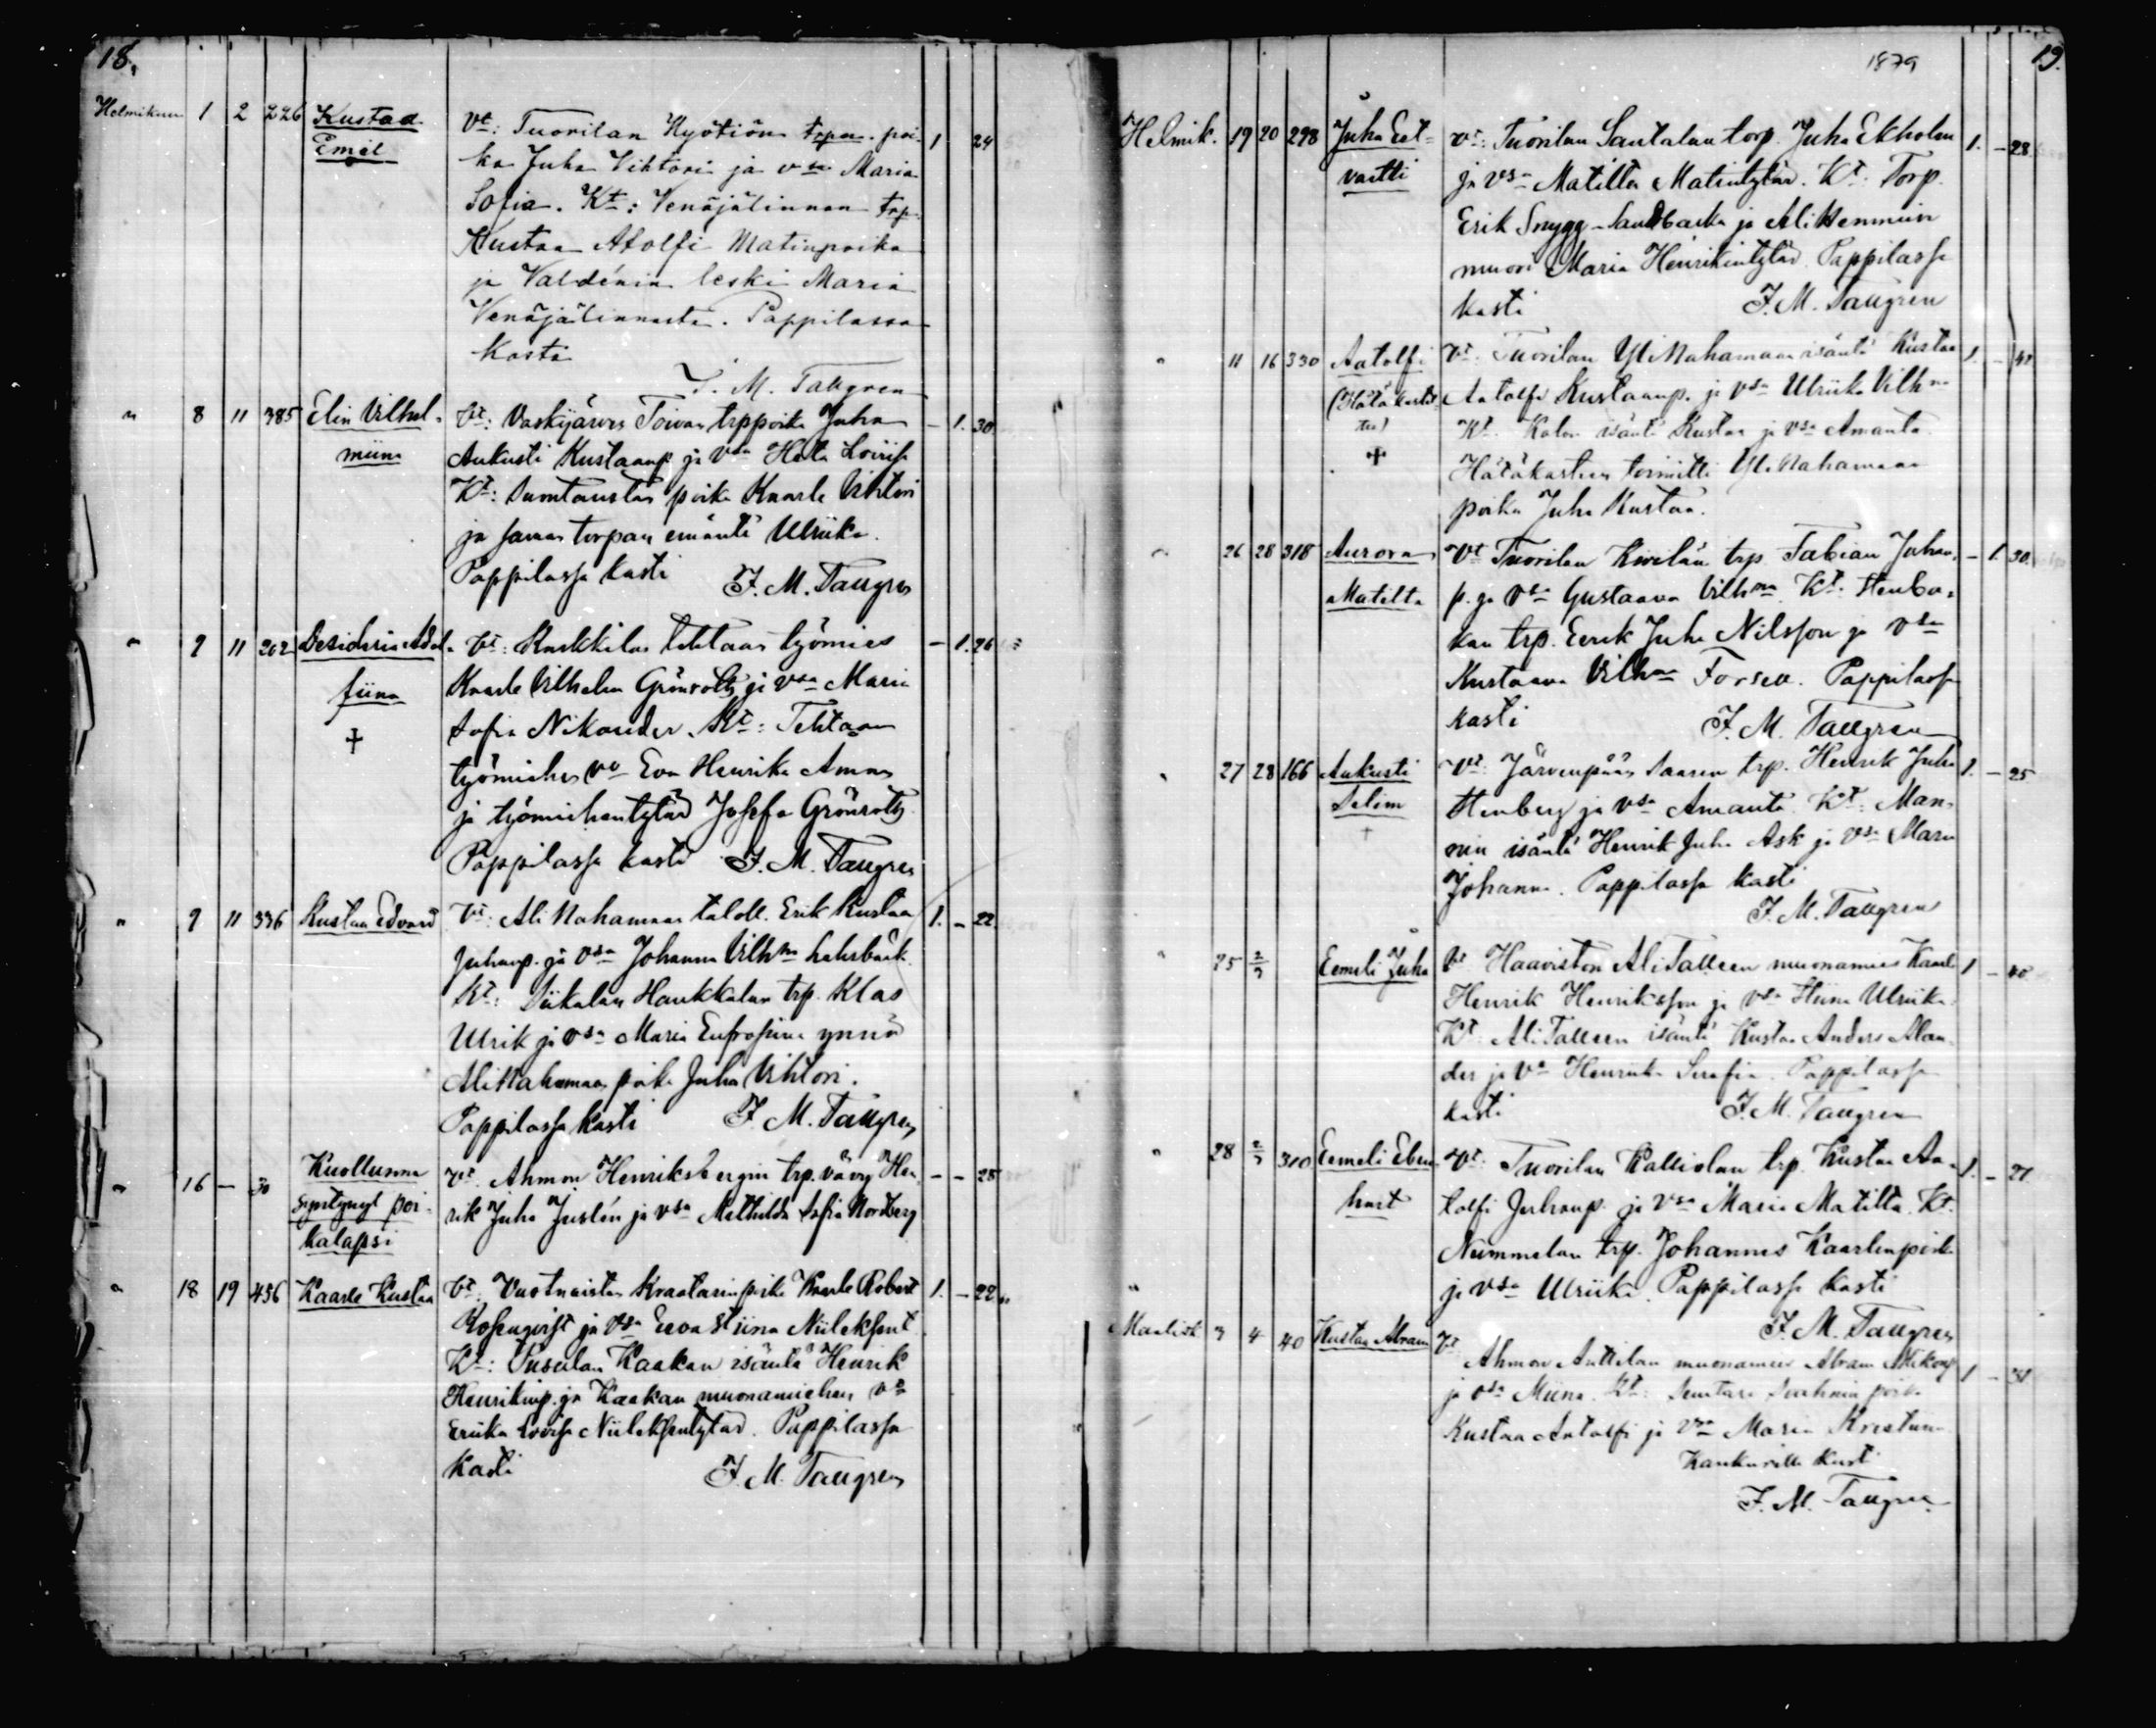 18.
Helmikuu 1 2 226 Kustaa Vt: Tuorilan Kyötiön trpn. poi- 1 24
Emil ka Juha Vihtori ja vsa Maria
Sofia. Kt: Venäjälinnan trp.
Kustaa Atolfi Matinpoika
ja Valdénin leski Maria
Venäjälinnasta. Pappilassa
kasti
F. M. Tallgren
" 8 11 385 Elin Vilhel- Vt: Vaskijärven Toivan trppoika Juha - 1. 30
miina Aukusti Kustaanp ja vsa Heta Loviisa
Kt: Suontaustan poika Kaarle Vihtori
ja saman torpan emäntä Ulriika.
Pappilassa kasti F. M. Tallgren
" 9 11 202 Desideria Adol- Vt: Kuskkilan tehtaan työmies - 1. 26
fiina Kaarle Vilhelm Grönroth ja vsa Maria
✝ Sofia Nikander. Kt: Tehtaan
työmiehen vo Eva Henrika Aman
ja työmiehentytär Josefa Grönroth
Pappilassa kasti F. M. Tallgren
" 9 11 336 Kustaa Edvard Vt: Ali Nahamaan taloll. Erik Kustaa 1. - 22.
Juhanp. ja vsa Johanna Vilhna
Kt: Siikalan Haukkalan trp. Klas
Ulrik ja vsa Maria Eufrosiina ynnä
AliNahamaan poika Juha Vihtori.
Pappilassa kasti F. M. Tallgren
" 16 - 30 Kuolluna Vt. Ahmon Henriksbergin trp. vävy Hen- - - 28
syntynyt poi- rik Juha Juslén ja vsa Mathilda Sofia Nordberg
kalapsi
" 18 19 456 Kaarle Kustaa Vt: Vuotnaisten Kraatarinpoika Kaarle Robert 1. - 22
Rosenqvist ja vsa Eeva Stiina Niileksent.
Kt: Pusulan Kaakan isäntä Henrik
Henrikinp. ja Kaakan muonamiehen vo
Eriika Lovisa Niileksentytär. Pappilassa
kasti F. M. Tallgren
1879 19.
Helmik. 19 20 298 Juha Eet- Vt: Tuorilan Santalan torp. Juha Ekholm 1. - 28
vartti ja vsa Matilta Matintytär. Kt: Torp.
Erik Snygg Sandbacka ja AliHenmiin
muori Maria Henrikintytär. Pappilassa
kasti F. M. Tallgren
" 11 16 330 Aatolfi Vt: Tuorilan YliNahamaan isäntä Kustaa 1. -
(Hätäkastet- Aatolfi Kustaanp. ja vsa Ulriika Vilhna
tu) Kt. isäntä Kustaa ja vsa Amanta
✝ Hätäkasteen toimitti YliNahamaan
poika Juha Kustaa.
" 26 28 318 Aurora Vt Tuorilan Kivelän trp. Fabian Juhan- - 1. 30
Matilta p. ja vsa Gustaava Vilhna Kt.
trp. Eerik Juha Nilsson ja vsa
Kustaava Vilhna Forsell. Pappilassa
kasti F. M. Tallgren
" 27 28 166 Aukusti Vt: Järvenpään Saaren trp. Henrik Juha 1. - 25
Selim Stenberg ja vsa Amanta Kt: Man-
✝ nin isäntä Henrik Juha Ask ja vsa Maria
Johanna. Pappilassa kasti
F. M. Tallgren
" 25 2/3 Eemeli Juha Vt Haaviston AliTalleen muonamies Kaarle 1 - 40
Henrik Henriksson ja vsa Stiina Ulriika
Kt: AliTalleen isäntä Kustaa Anders Alan-
der ja vo Henriika Serafia. Pappilassa
kasti F. M. Tallgren
" 28 2/3 310 Eemeli Eben- Vt: Tuorilan Kalliolan trp. Kustaa Aa- 1. - 27
hart tolfi Juhanp. ja vsa Maria Matilta. Kt.
Nummelan trp. Johannes Kaarlenpoika
ja vsa Ulriika. Pappilassa kasti
F. M. Tallgren
Maalisk 3 4 40 Kustaa Abram Vt Ahmon Anttilan muonamies Abram 1 - 31
ja vsa Miina. Kt: poika
Kustaa Aatolfi ja vsa Maria Kristiina
kasti
F. M. Tallgren